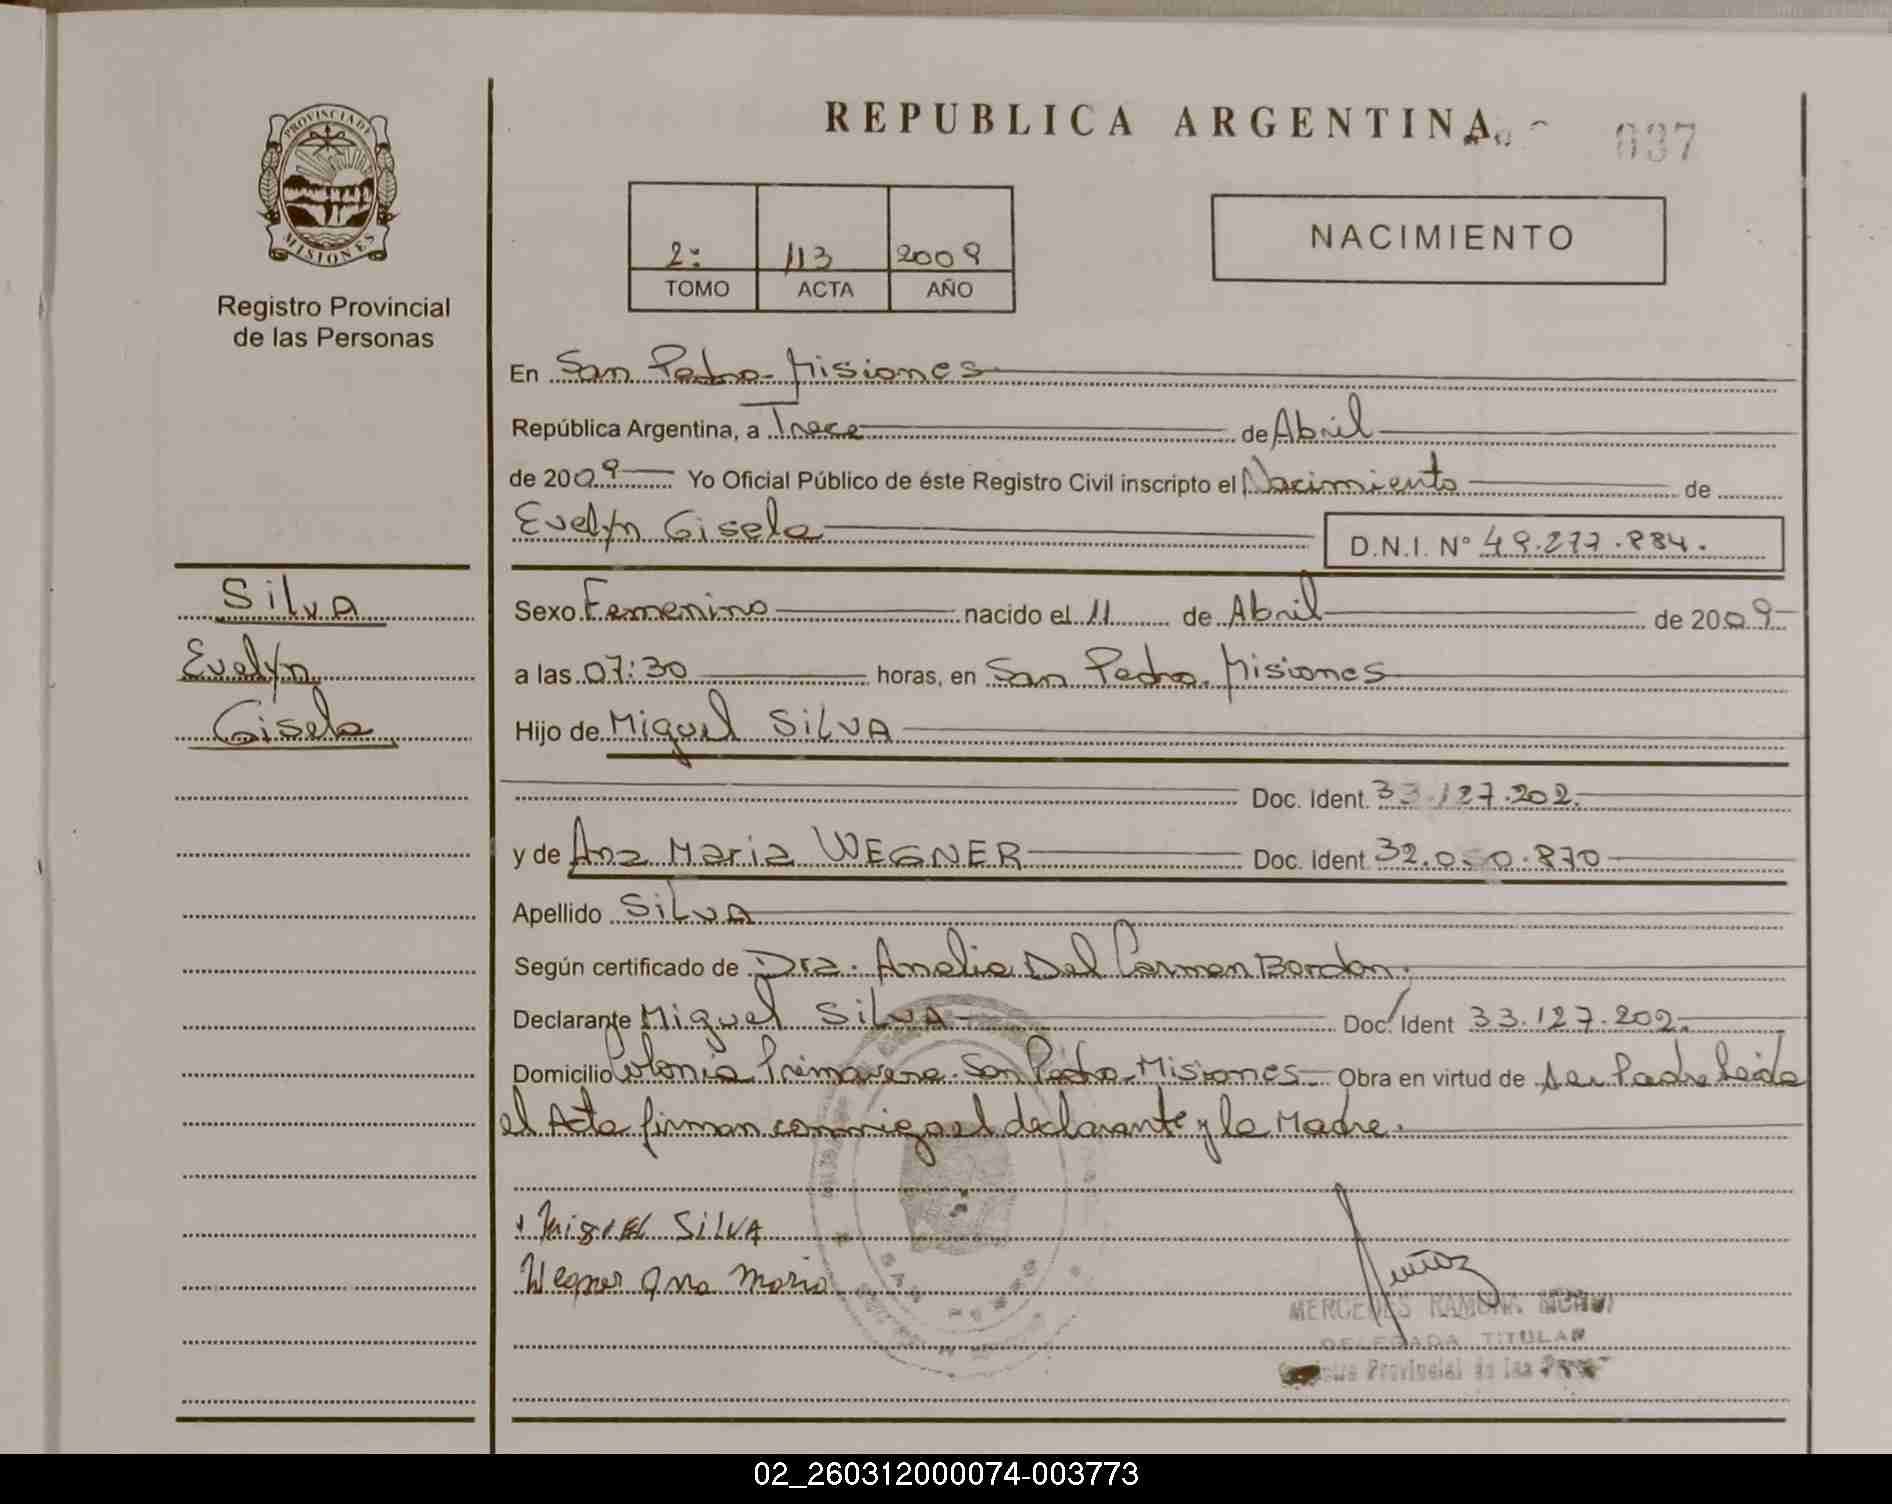 PROVINCIA DE
MISIONES
Registro Provincial
de las Personas
REPUBLICA ARGENTINA
037
2: 113 2009
TOMO ACTA AÑO
NACIMIENTO
En San Pedro - Misiones
República Argentina, a Trece de Abril
de 2009 Yo Oficial Público de éste Registro Civil inscripto el Nacimiento de
Evelyn Gisela D.N.I. N° 49.277.884.
Silva
Evelyn
Gisela
Sexo Femenino nacido el 11 de Abril de 2009
a las 07:30 horas, en San Pedro. Misiones
Hijo de Miguel SILVA
Doc. Ident. 33.127.202.
y de Ana Maria WEGNER Doc. Ident. 32.050.870
Apellido SILVA
Según certificado de Dra. Analia Del Carmen Bordon.
Declarante Miguel SILVA Doc. Ident 33.127.202.
Domicilio Colonia Primavera. San Pedro. Misiones Obra en virtud de Ser Padre Leida
el Acta firman conmigo el declarante y la Madre.
Miguel SILVA
Wegner Ana Maria
MERCEDES RAMONA
DELEGADA TITULAR
Provincial de las
SAN PEDRO
02_260312000074-003773